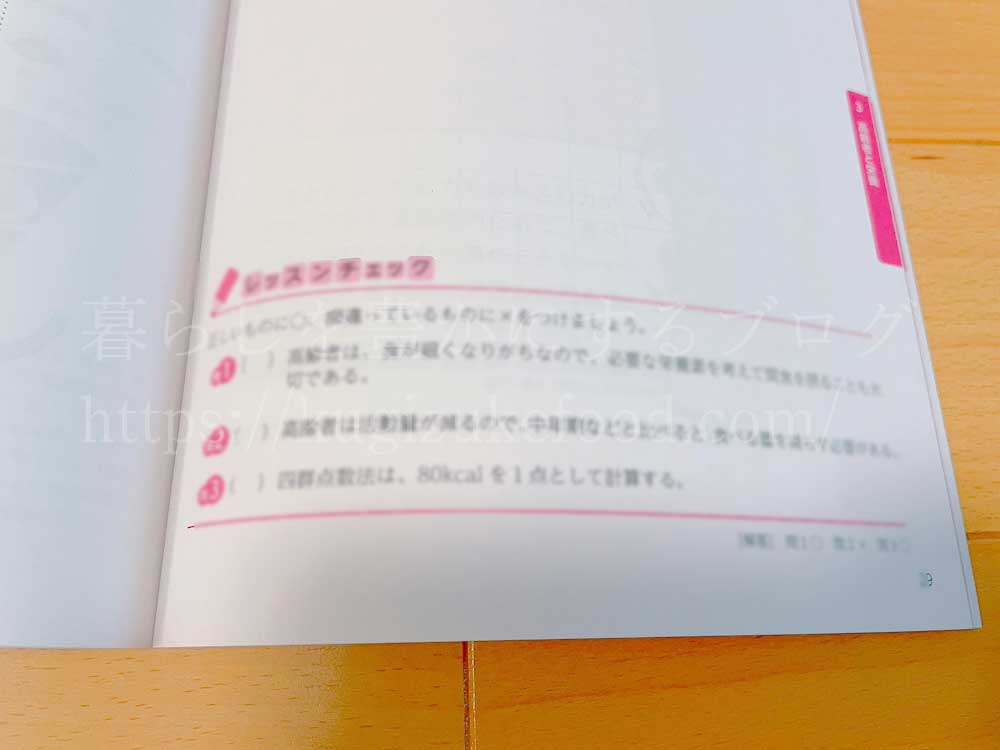 レッスンチェック
正しいものに○、間違っているものに×をつけましょう。
1 ( ) 高齢者は、食が細くなりがちなので、必要な栄養素を考えて間食を摂ることも大
切である。
2 ( ) 高齢者は活動量が減るので、中年期などと比べると、食べる量を減らす必要がある。
3 ( ) 四群点数法は、80kcalを1点として計算する。
[解答] 問1○ 問2× 問3○
9
暮らしを豊かにするブログ